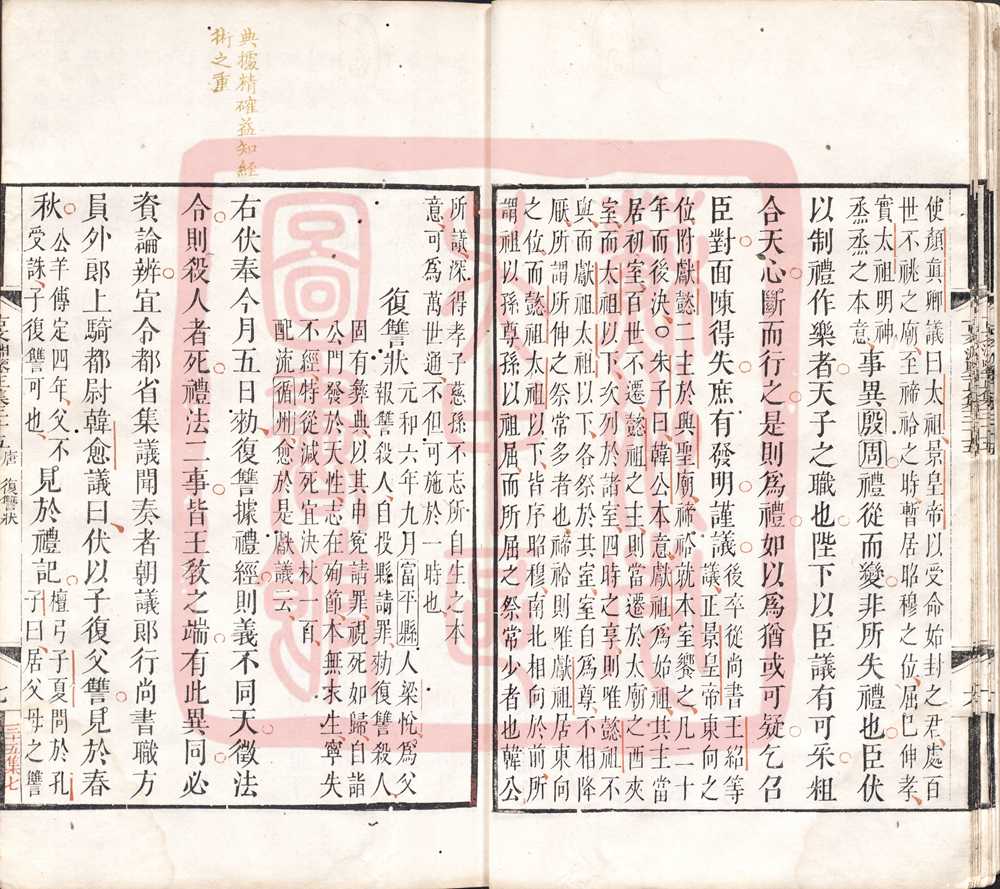 使顏真卿議曰太祖景皇帝以受命始封之君處百
世不祧之廟至禘祫之時暫居昭穆之位屈己伸孝
實太祖明神
烝烝之本意事異殷周禮從而變非所失禮也臣伏
以制禮作樂者天子之職也陛下以臣議有可采粗
合天心斷而行之是則為禮如以為猶或可疑乞召
臣對面陳得失庶有發明謹議
後卒從尚書王紹等
議正景皇帝東向之
位附獻懿二主於興聖廟禘祫就本室饗之凡二十
年而後決○朱子曰韓公本意獻祖為始祖其主當
居初室百世不遷懿祖之主則當遷於太廟之西夾
室而太祖以下以次列於諸室四時之享則唯懿祖不
與而獻祖太祖以下各祭於其室室自為尊不相降
厭所謂所伸之祭常多者也禘祫則唯獻祖居東向
之位而懿祖太祖以下皆序昭穆南北相向於前所
謂祖以孫尊孫以祖屈而所屈之祭常少者也韓公
所議深得孝子慈孫不忘所自生之本
意可為萬世通不但可施於一時也
復讐狀
元和六年九月富平縣人梁悅為父
報讐殺人自投縣請罪勑復讐殺人
固有彝典以其申冤請罪視死如歸自詣
公門發於天性志在殉節本無求生寧失
不經特從減死宜決杖一百
配流循州愈於是獻議云
右伏奉今月五日勑復讐據禮經則義不同天徵法
令則殺人者死禮法二事皆王教之端有此異同必
資論辨宜令都省集議聞奏者朝議郎行尚書職方
員外郎上騎都尉韓愈議曰伏以子復父讐見於春
秋
公羊傳定四年父不
受誅子復讐可也
見於禮記
檀弓子夏問於孔
子曰居父母之讐
唐
復讐狀
七
三十五集七
典據精確益知經
術之重